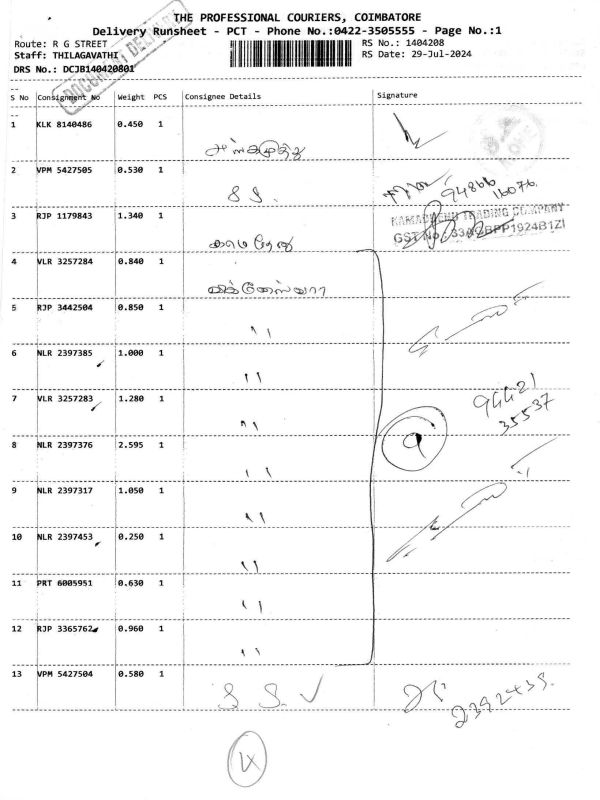 THE PROFESSIONAL COURIERS, COIMBATORE
Delivery Runsheet - PCT - Phone No.:0422-3505555 - Page No.:1
Route: R G STREET
RS No.: 1404208
Staff: THILAGAVATHI
RS Date: 29-Jul-2024
DRS No.: DCJB140420801
S No Consignment No Weight PCS Consignee Details Signature
1 KLK 8140486 0.450 1
2 VPM 5427505 0.530 1 S S. 94866
16076.
3 RJP 1179843 1.340 1 காமதேனு KAMADHENU TRADING COMPANY
4 VLR 3257284 0.840 1 விக்னேஸ்வரா
5 RJP 3442504 0.850 1 "
6 NLR 2397385 1.000 1 "
7 VLR 3257283 1.280 1 " 94421
35537
8 NLR 2397376 2.595 1 " 9
9 NLR 2397317 1.050 1 "
10 NLR 2397453 0.250 1 "
11 PRT 6005951 0.630 1 "
12 RJP 3365762 0.960 1 "
13 VPM 5427504 0.580 1 S. S. ✓ 2392439.